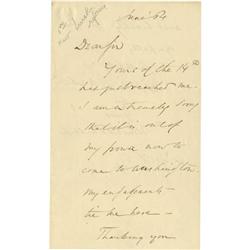 June 64
Dear Sir
Yours of the 14th
has just reached me.
I am extremely sorry
that it is out of
my power now to
come to Washington.
My engagements
tie me here –
Thanking you